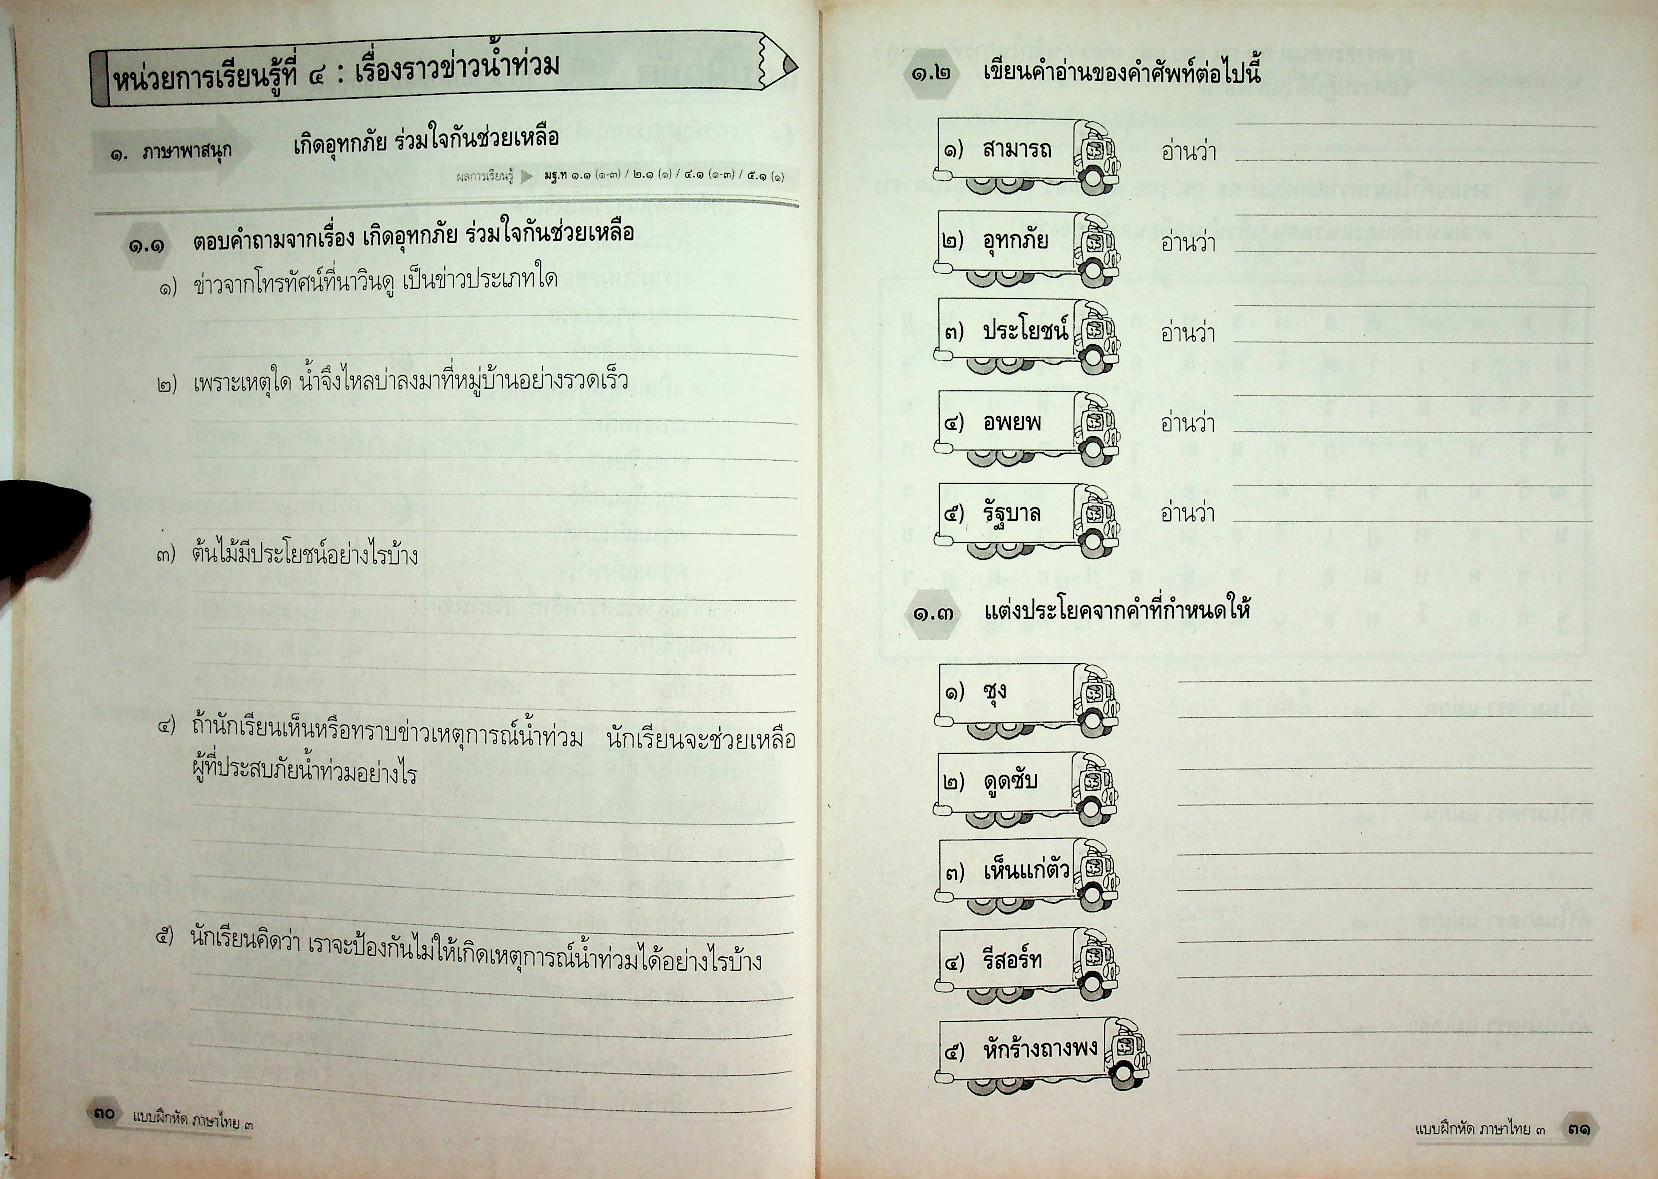 หน่วยการเรียนรู้ที่ ๔ : เรื่องราวข่าวน้ำท่วม
๑. ภาษาพาสนุก เกิดอุทกภัย ร่วมใจกันช่วยเหลือ
ผลการเรียนรู้ มฐ.ท ๑.๑ (๑-๓) / ๒.๑ (๑) / ๔.๑ (๑-๓) / ๕.๑ (๑)
๑.๑ ตอบคำถามจากเรื่อง เกิดอุทกภัย ร่วมใจกันช่วยเหลือ
๑) ข่าวจากโทรทัศน์ที่นาวินดู เป็นข่าวประเภทใด
๒) เพราะเหตุใด น้ำจึงไหลบ่าลงมาที่หมู่บ้านอย่างรวดเร็ว
๓) ต้นไม้มีประโยชน์อย่างไรบ้าง
๔) ถ้านักเรียนเห็นหรือทราบข่าวเหตุการณ์น้ำท่วม นักเรียนจะช่วยเหลือ
ผู้ที่ประสบภัยน้ำท่วมอย่างไร
๕) นักเรียนคิดว่า เราจะป้องกันไม่ให้เกิดเหตุการณ์น้ำท่วมได้อย่างไรบ้าง
๓๐ แบบฝึกหัด ภาษาไทย ๓
๑.๒ เขียนคำอ่านของคำศัพท์ต่อไปนี้
๑) สามารถ อ่านว่า
๒) อุทกภัย อ่านว่า
๓) ประโยชน์ อ่านว่า
๔) อพยพ อ่านว่า
๕) รัฐบาล อ่านว่า
๑.๓ แต่งประโยคจากคำที่กำหนดให้
๑) ซุง
๒) ดูดซับ
๓) เห็นแก่ตัว
๔) รีสอร์ท
๕) หักร้างถางพง
แบบฝึกหัด ภาษาไทย ๓ ๓๑